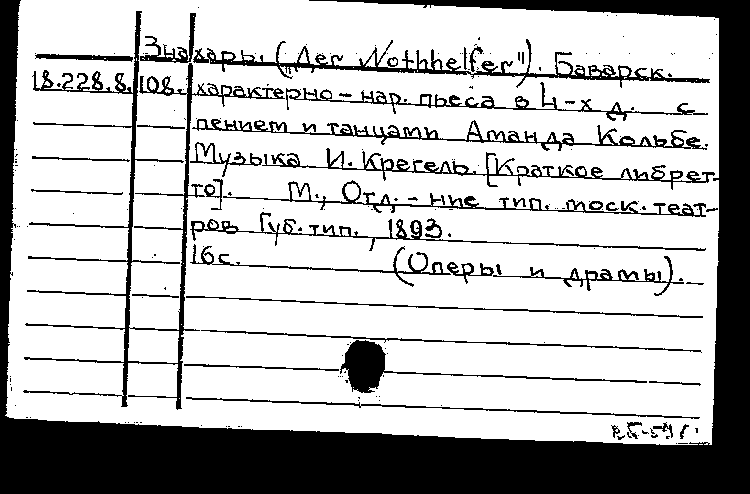 Знахарь. („Der Nothhelfer"). Баварск.
18.228.8.108. характерно-нар. пьеса в 4-х д. с
пением и танцами Аманда Кольбе.
Музыка И. Крегель. [Краткое либрет-
то]. М., Отд.-ние тип. моск. теат-
ров Губ. тип., 1893.
16 с. (Оперы и драмы).